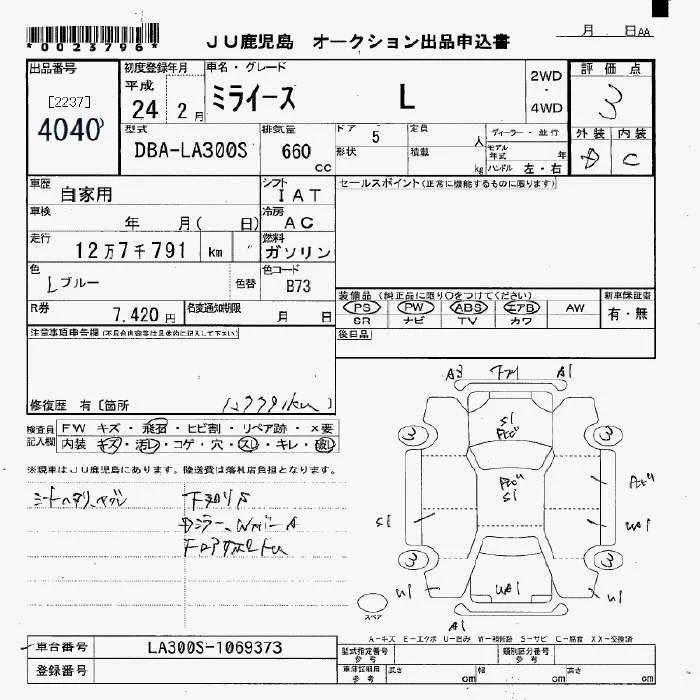 *0023796*
JU鹿児島 オークション出品申込書
月 日AA
出品番号
[2237]
4040
初度登録年月
平成
24 2月
車名・グレード
ミライース L
2WD
・
4WD
評価点
3
外装 内装
D C
型式
DBA-LA300S
排気量
660
cc
ドア 5
定員
人
形状
積載
kg
ディーラー・並行
モデル
年式
年
ハンドル 左・右
車歴
自家用
シフト
IAT
セールスポイント(正常に機能するものに限ります)
車検
年 月( 日)
冷房
AC
走行
12万7千791 km
燃料
ガソリン
色
Lブルー
色替
色コード
B73
装備品(純正品に限り○をつけてください)
新車保証書
PS PW ABS エアB AW
SR ナビ TV カワ
有・無
R券
7,420円
名変通知期限
月 日
後日品
注意事項申告欄(不具合内容等は具体的に記入して下さい)
修復歴 有〔箇所 〕
127791km
検査員
記入欄
FW キズ・飛石・ヒビ割・リペア跡・×要
内装 キズ・汚レ・コゲ・穴・スレ・キレ・破レ
※現車はJU鹿児島にあります。陸送費は落札店負担となります。
A3 A1
S1
3 3
S1
S1 UA1
3 3
U1 UA1 U1
A1
スペア
A-キズ E-エクボ U-凹み W-補修跡 S-サビ C-腐食 XX-交換済
車台番号
LA300S-1069373
登録番号
型式指定番号
参考
類別区分番号
参考
車庫証明用
参考
長さ cm
幅 cm
高さ cm